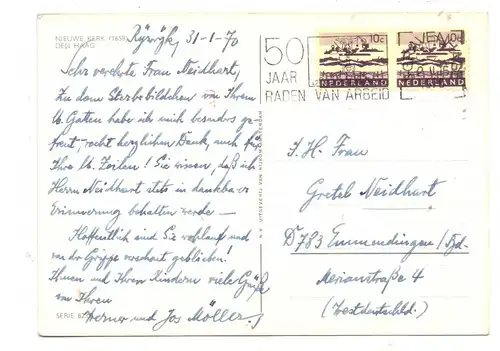 NIEUWE KERK (1656)
DEN HAAG
Rijswijk, 31-1-70
Sehr verehrte Frau Neidhart,
Zu dem Sterbebildchen von Ihrem
lb. Gatten habe ich mich besonders ge-
freut, recht herzlichen Dank, auch für
Ihre lb. Zeilen! Sie wissen, daß ich
Herrn Neidhart stets in dankbarer
Erinnerung behalten werde —
Hoffentlich sind Sie wohlauf und
von der Grippe verschont geblieben!
Ihnen und Ihren Kindern viele Grüße
von Ihren
Werner und Jos Möller.
SERIE
N.V. UITGEVERIJ VAN
50
JAAR
RADEN VAN ARBEID
10c
NEDERLAND
10c
NEDERLAND
I. H. Frau
Gretel Neidhart
D 783 Emmendingen/Bd.
Merianstraße 4
(Westdeutschld.)